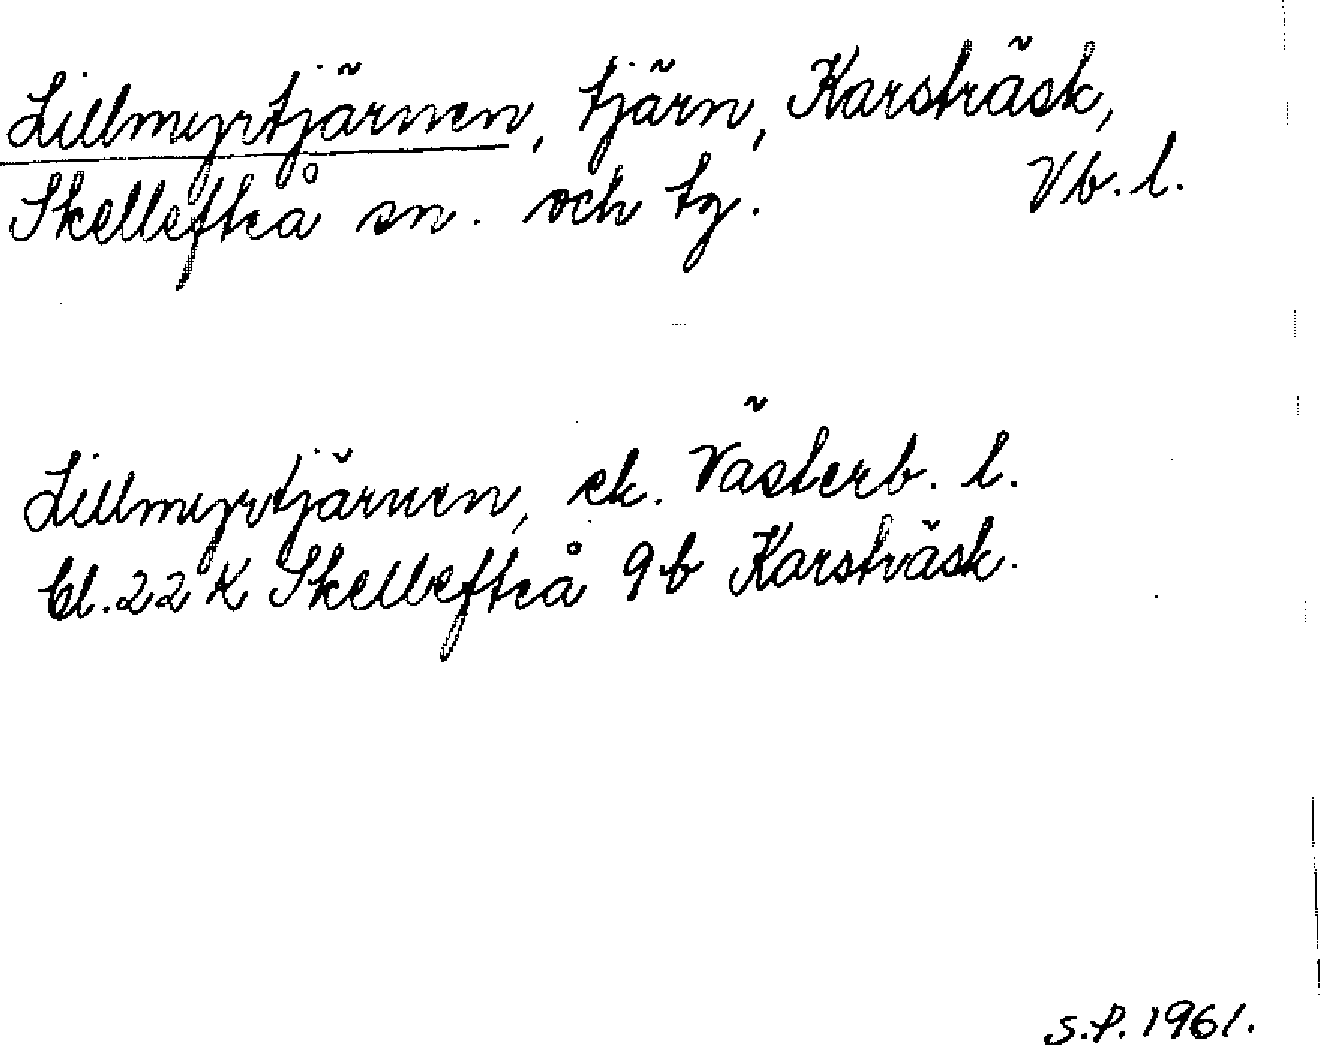 Lillmyrtjärnen, tjärn, Karsträsk,
Skellefteå sn. och tg. Vb. l.
Lillmyrtjärnen, ek. Västerb. l.
bl. 22 K Skellefteå 9 b Karsträsk.
S.P. 1961.